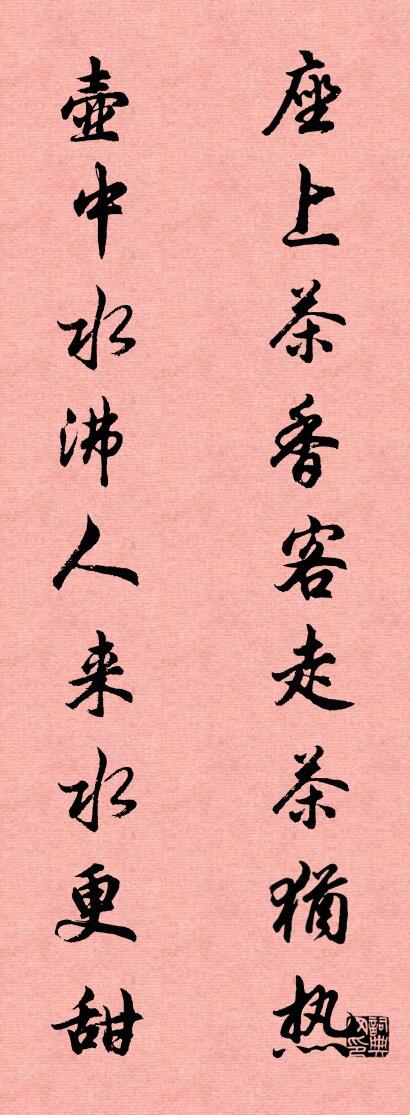 座上茶香客走茶猶热
壺中水沸人来水更甜